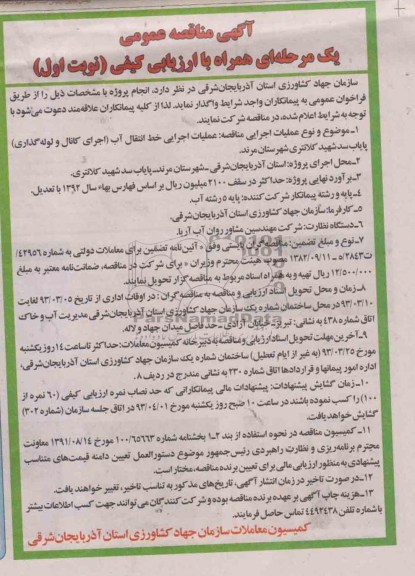 آگهی مناقصه عمومی
یک مرحله‌ای همراه با ارزیابی کیفی (نوبت اول)
سازمان جهاد کشاورزی استان آذربایجان‌شرقی در نظر دارد، انجام پروژه با مشخصات ذیل را از طریق
فراخوان عمومی به پیمانکاران واجد شرایط واگذار نماید. لذا از کلیه پیمانکاران علاقه‌مند دعوت می‌شود با
توجه به شرایط اعلام شده، در مناقصه شرکت نمایند.
۱-موضوع و نوع عملیات اجرایی مناقصه: عملیات اجرایی خط انتقال آب (اجرای کانال و لوله‌گذاری)
پایاب سد شهید کلانتری شهرستان مرند.
۲-محل اجرای پروژه: استان آذربایجان‌شرقی-شهرستان مرند-پایاب سد شهید کلانتری.
۳-برآورد نهایی پروژه: حداکثر در سقف ۲۱۰۰ میلیون ریال بر اساس فهارس بهاء سال ۱۳۹۲ با تعدیل.
۴-پایه و رشته پیمانکار شرکت کننده: پایه ۵ رشته آب.
۵-کارفرما: سازمان جهاد کشاورزی استان آذربایجان‌شرقی.
۶-دستگاه نظارت: شرکت مهندسین مشاور روان آب آریا.
۷-نوع و مبلغ تضمین: مناقصه‌گران بایستی وفق « آئین‌نامه تضمین برای معاملات دولتی به شماره ۴۲۹۵۶/
ت۲۸۴۹۳ه- ۱۳۸۲/۰۹/۱۱ مصوب هیئت محترم وزیران » برای شرکت در مناقصه، ضمانت‌نامه معتبر به مبلغ
۱۲/۵۰۰/۰۰۰ ریال تهیه و به همراه اسناد مربوط به مناقصه گزار تحویل نمایند.
۸-زمان و محل تحویل اسناد ارزیابی و مناقصه به مناقصه گران : در اوقات اداری از تاریخ ۹۳/۰۳/۰۵ لغایت
۹۳/۰۳/۱۰ در محل ساختمان شماره یک سازمان جهاد کشاورزی استان آذربایجان‌شرقی مدیریت آب و خاک
اتاق شماره ۴۳۸ به نشانی: تبریز-خیابان آزادی- حد فاصل میدان جهاد و لاله.
۹-آخرین مهلت تحویل اسناد ارزیابی و مناقصه به دبیرخانه کمیسیون معاملات: حداکثر تا ساعت ۱۴ روز یکشنبه
مورخ ۹۳/۰۳/۲۵ (به غیر از ایام تعطیل) ساختمان شماره یک سازمان جهاد کشاورزی استان آذربایجان‌شرقی،
اداره امور پیمانها و قراردادها اتاق شماره ۲۳۰ به نشانی مندرج در ردیف ۸.
۱۰-زمان گشایش پیشنهادات: پیشنهادات مالی پیمانکارانی که حد نصاب نمره ارزیابی کیفی (۶۰ نمره از
۱۰۰) را کسب نموده باشند در ساعت ۱۰ صبح روز یکشنبه مورخ ۹۳/۰۴/۰۱ در اتاق جلسه سازمان (شماره ۳۰۲)
گشایش خواهد یافت.
۱۱-کمیسیون مناقصه در نحوه استفاده از بند ۲-۱ بخشنامه شماره ۱۰۰/۶۵۶۶۳ مورخ ۱۳۹۱/۰۸/۱۴ معاونت
محترم برنامه‌ریزی و نظارت راهبردی رئیس‌جمهور موضوع دستورالعمل تعیین دامنه قیمت‌های متناسب
پیشنهادی به منظور ارزیابی مالی برای تعیین برنده مناقصه، مختار است.
۱۲-در صورت تاخیر در زمان انتشار آگهی، تاریخ‌های مذکور به تناسب تاخیر، تغییر خواهند یافت.
۱۳-هزینه چاپ آگهی بر عهده برنده مناقصه بوده و شرکت کنندگان می‌توانند جهت کسب اطلاعات بیشتر
با شماره تلفن ۴۴۹۲۴۳۸ تماس حاصل فرمایند.
کمیسیون معاملات سازمان جهاد کشاورزی استان آذربایجان شرقی
ParsNamadData